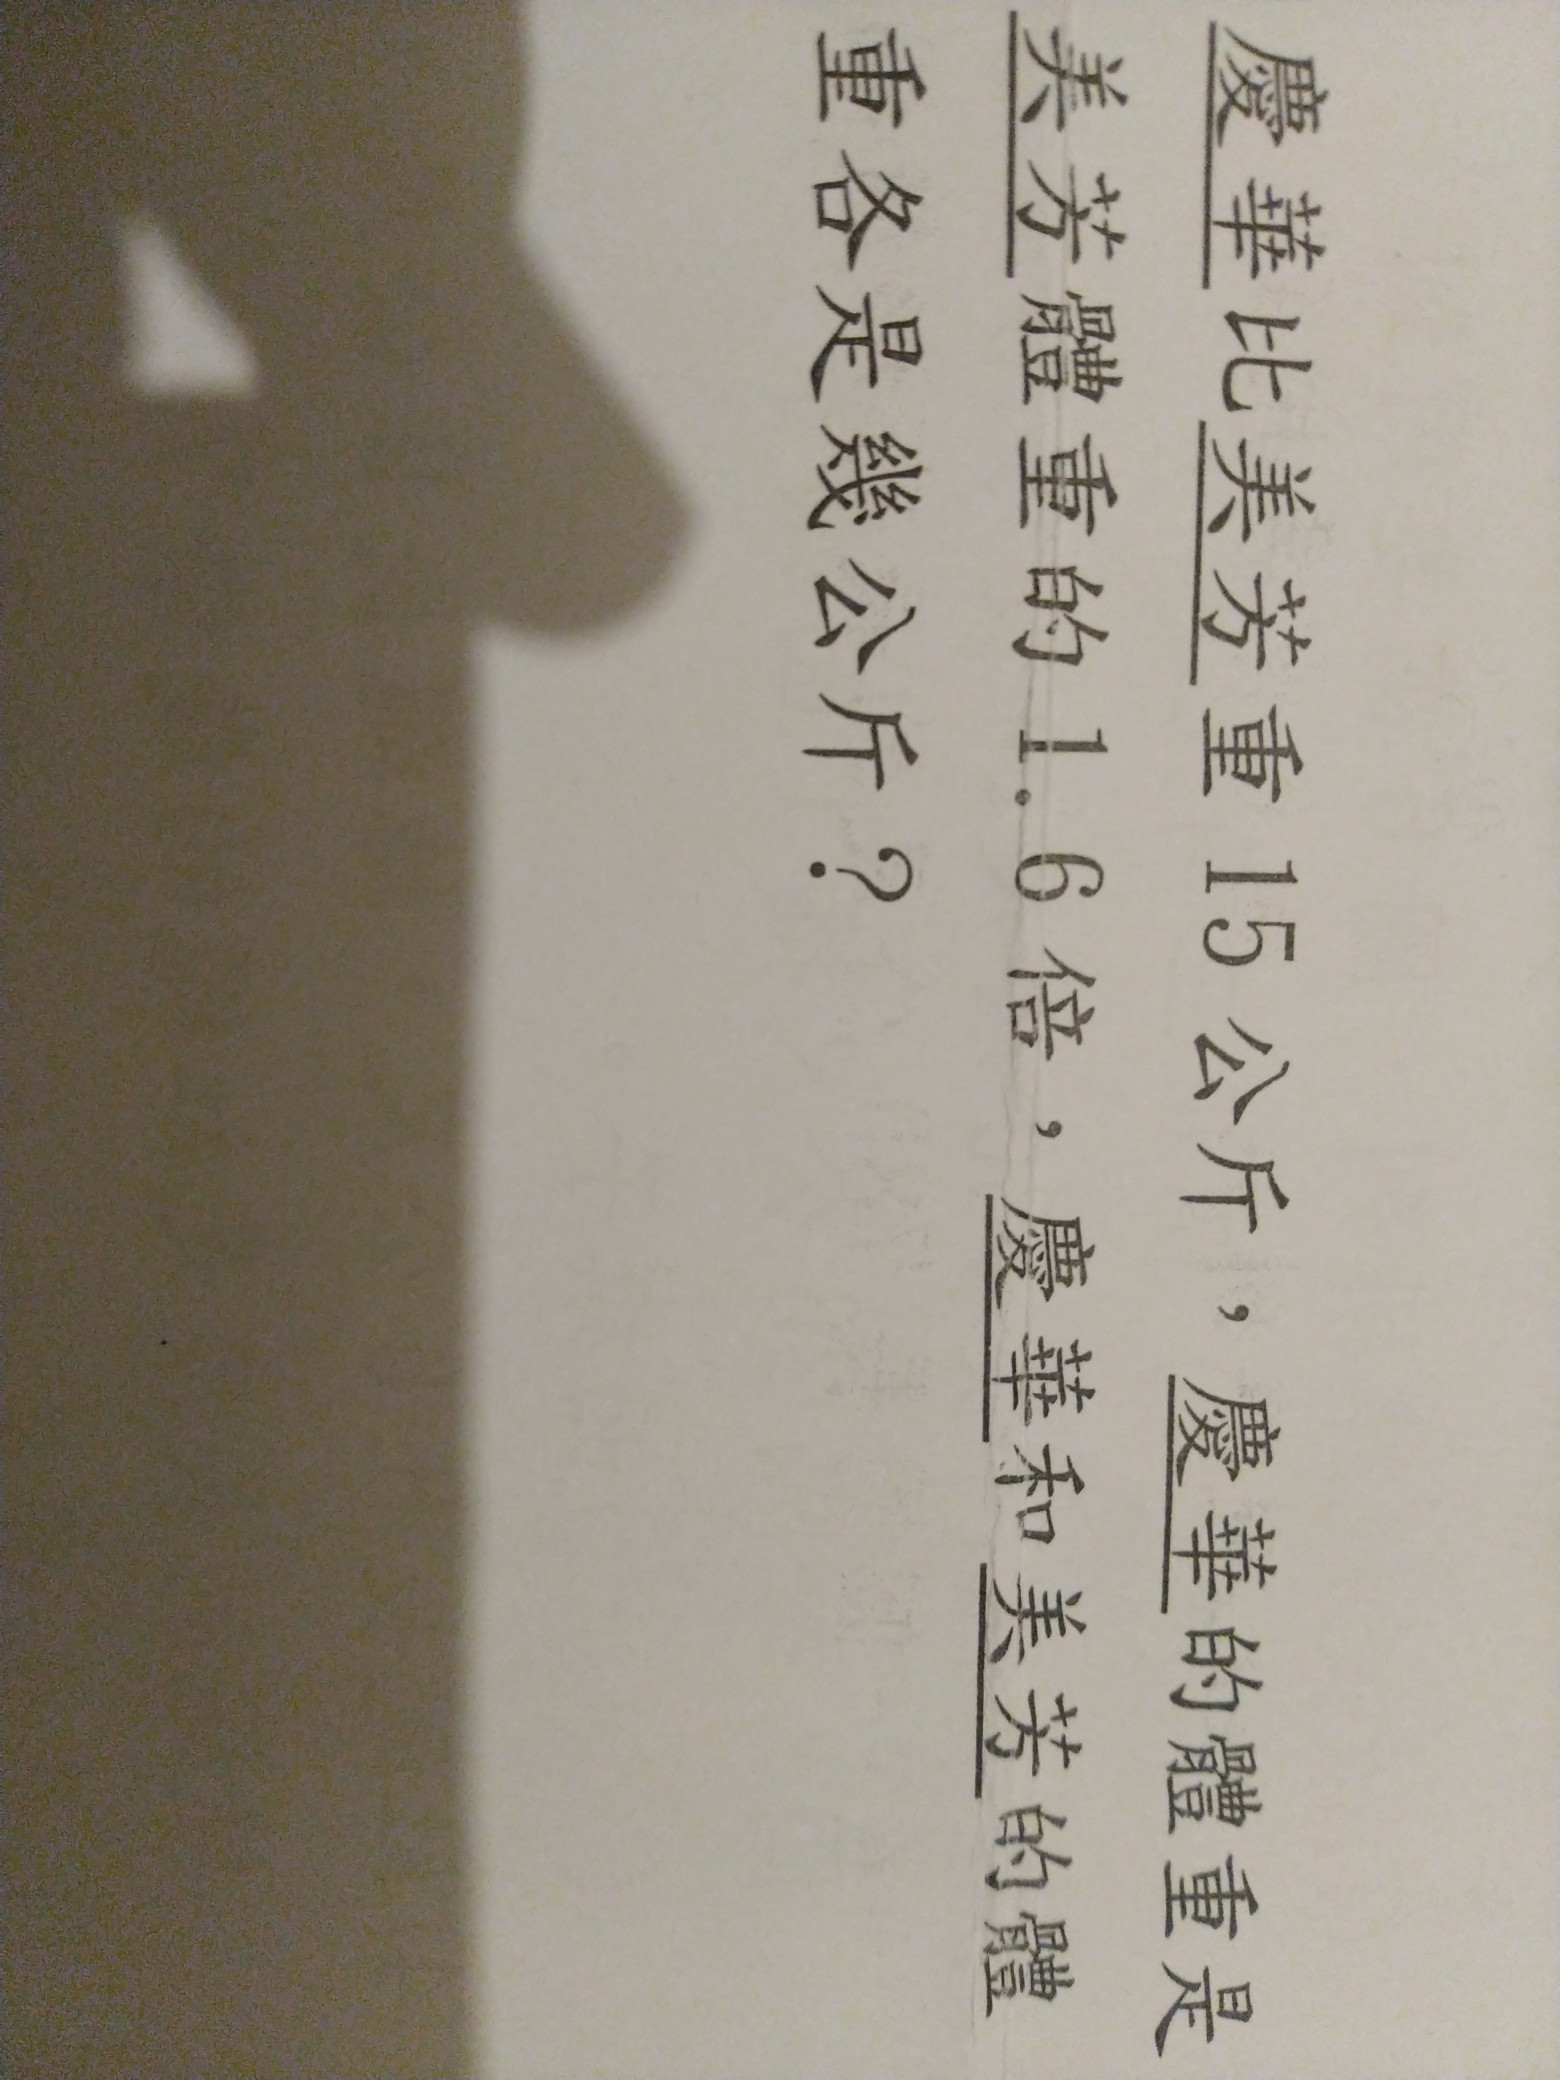 慶華比美芳重15公斤，慶華的體重是
美芳體重的1.6倍，慶華和美芳的體
重各是幾公斤？